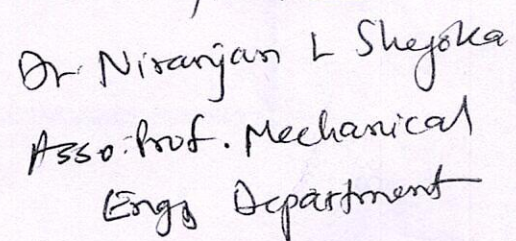 Dr. Niranjan L Shejoka
Asso. Prof. Mechanical
Engg Department